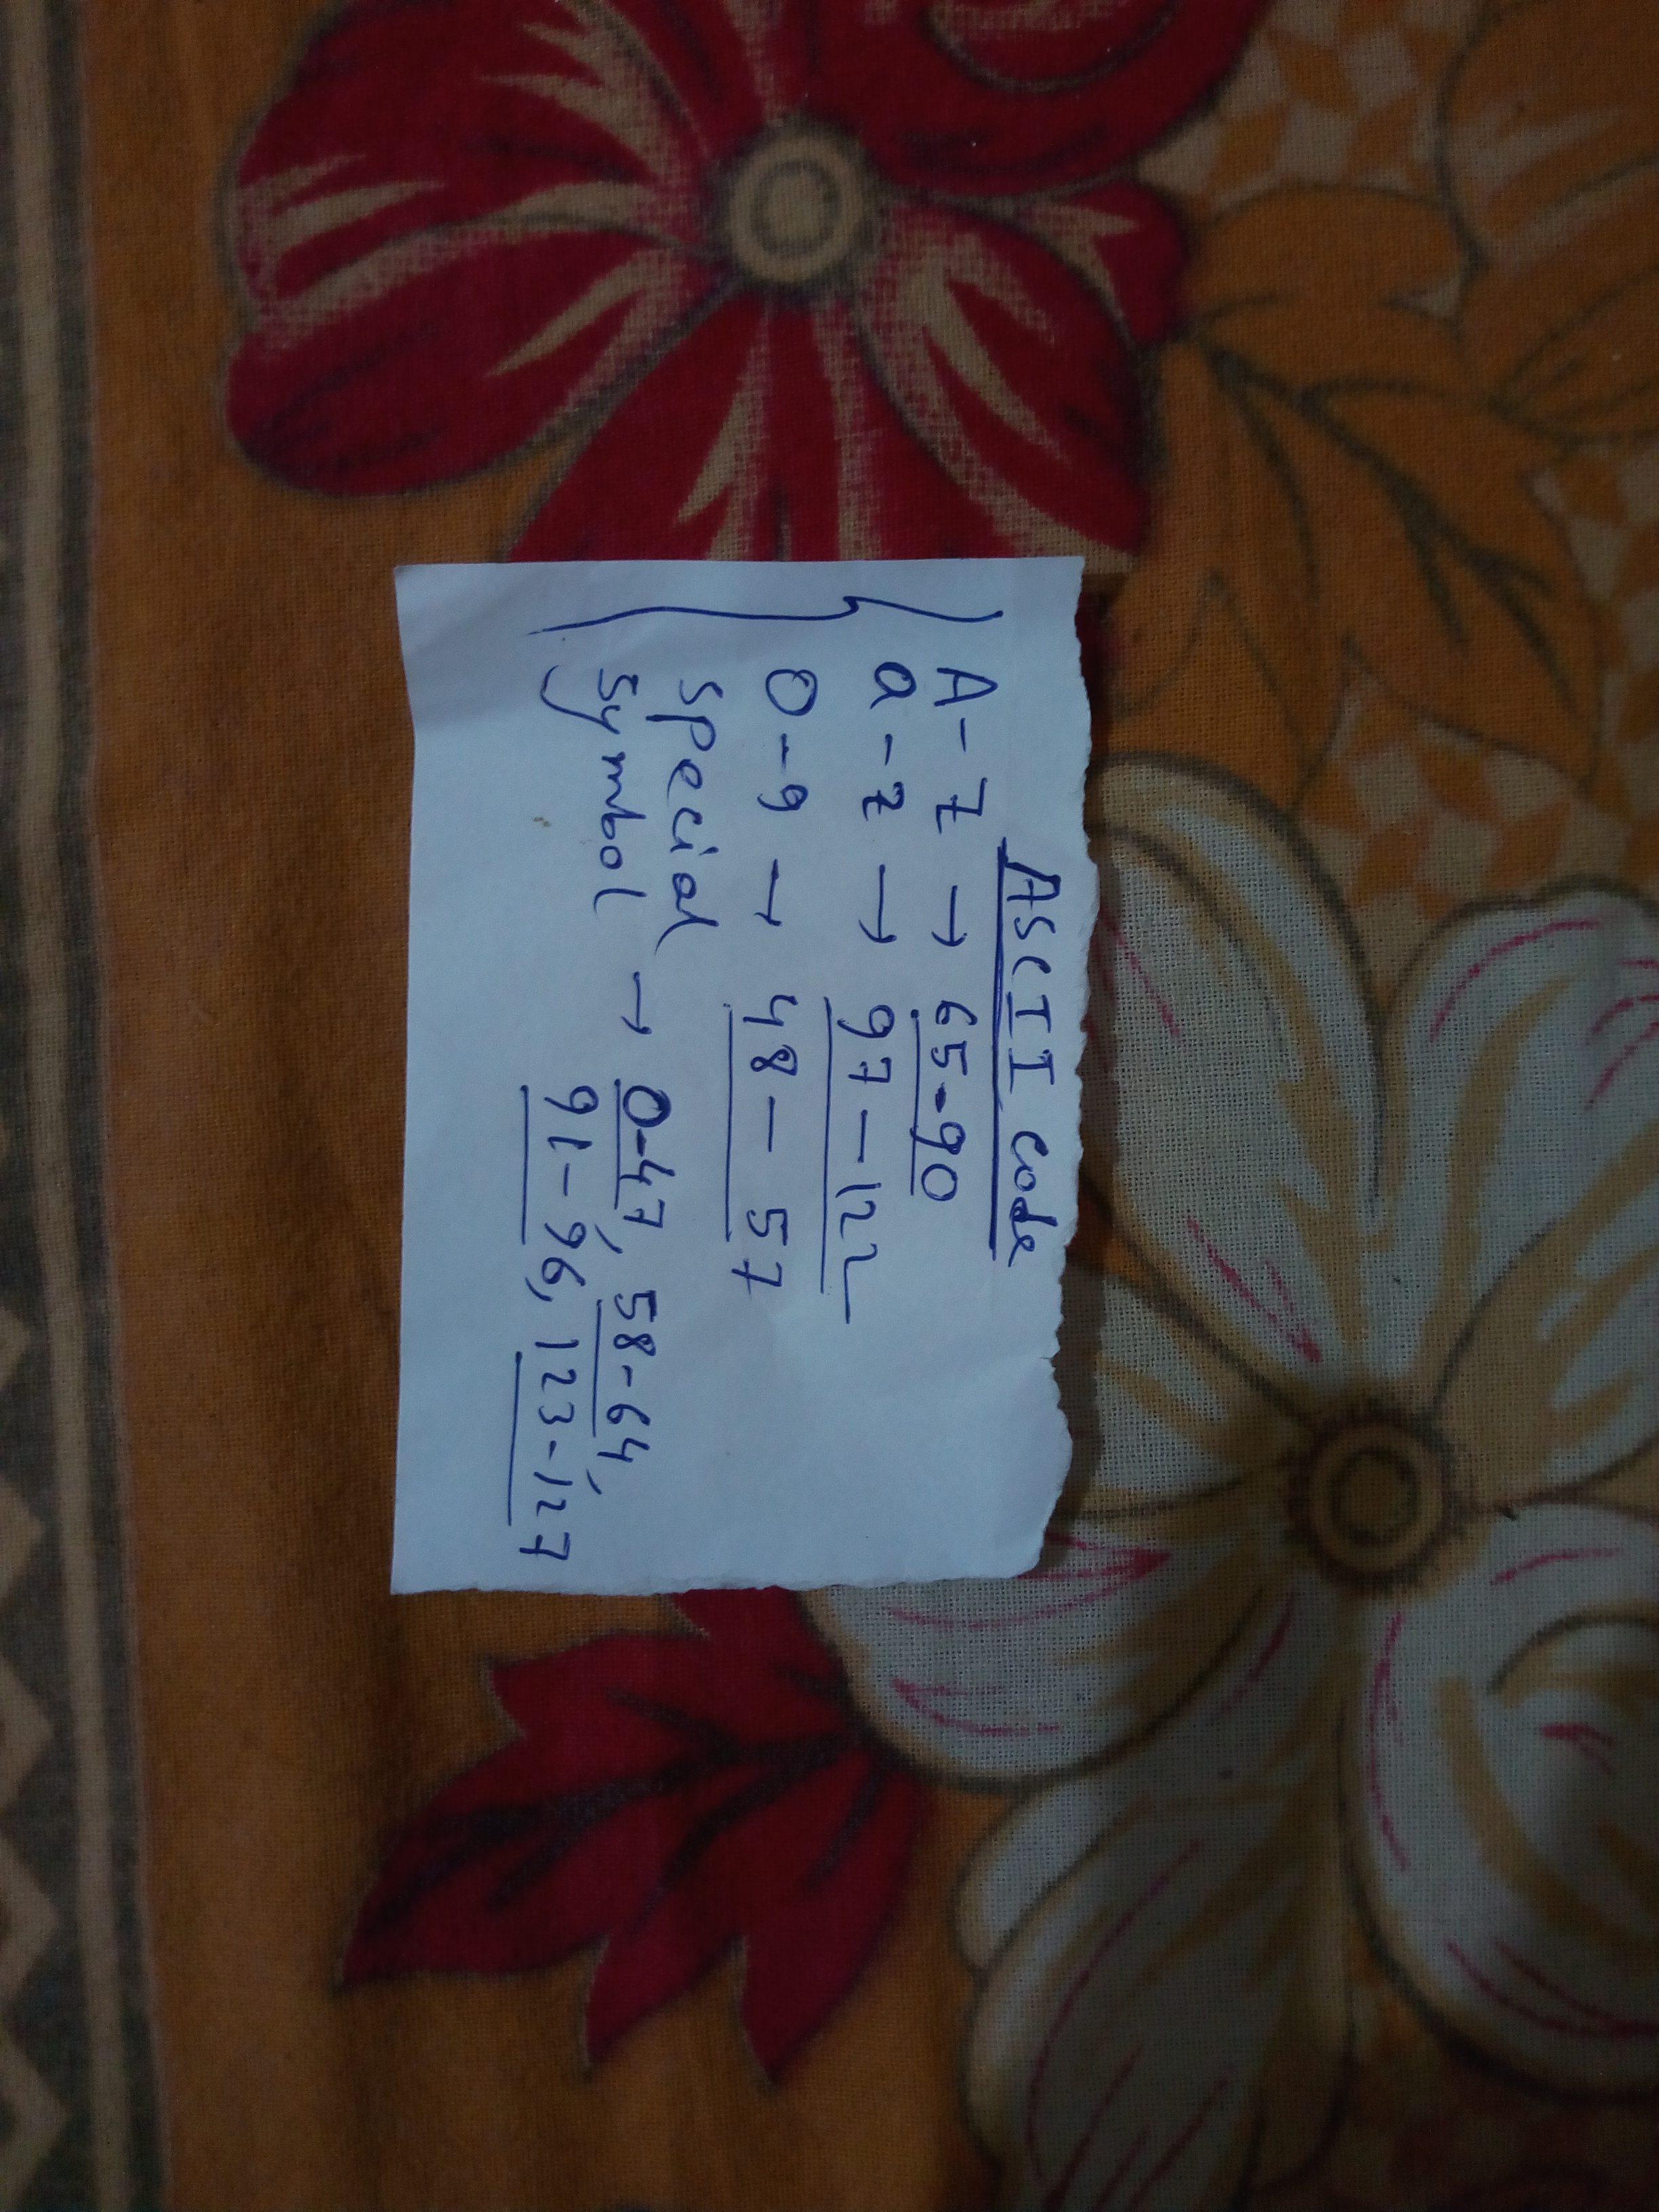 ASCII Code
A - Z → 65-90
a - z → 97 - 122
0 - 9 → 48 - 57
Special
Symbol → 0-47, 58-64,
91-96, 123-127